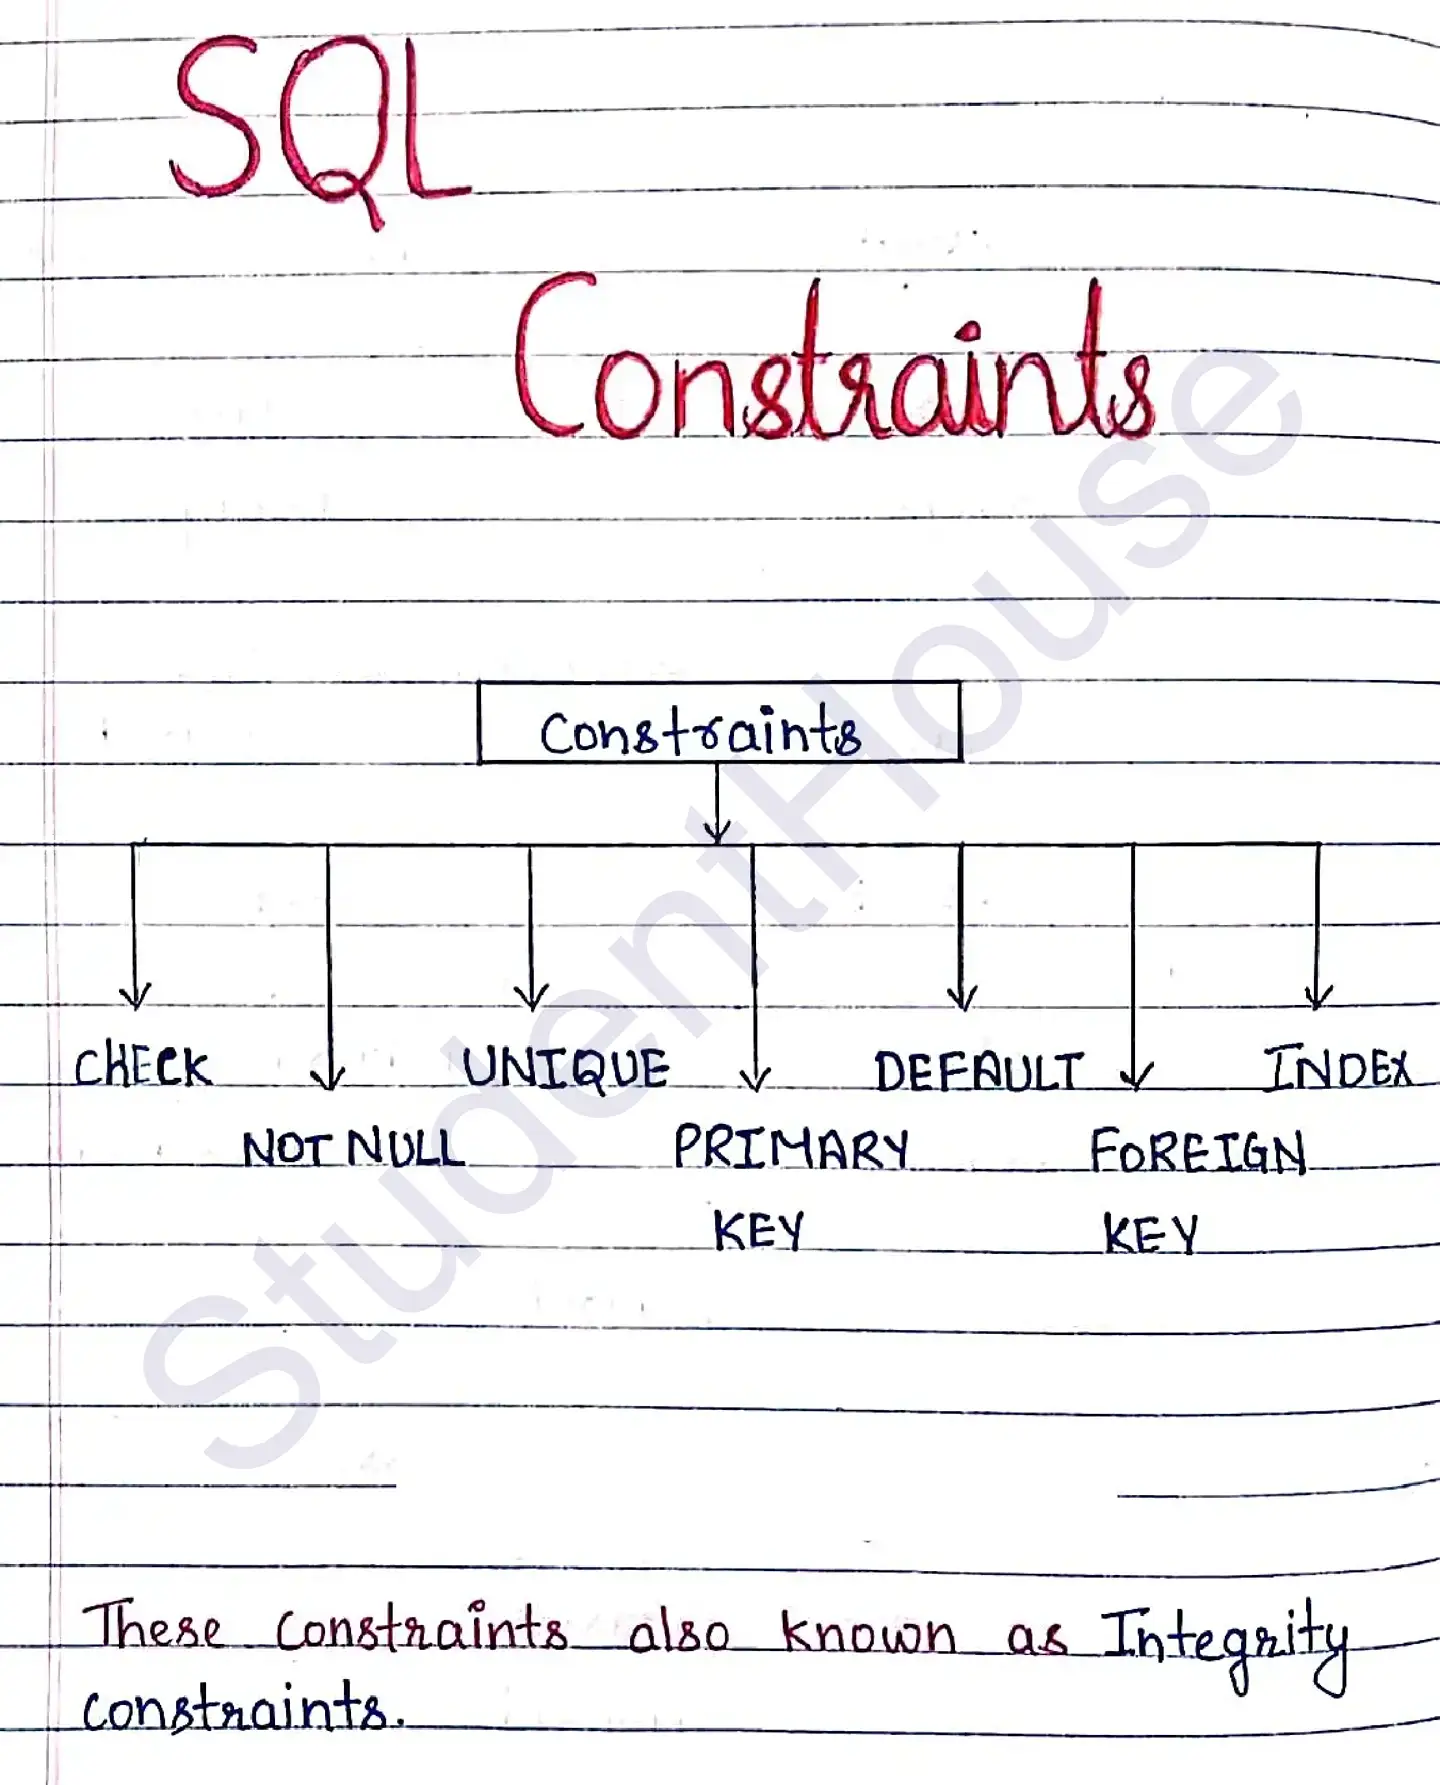 SQL
Constraints
Constraints
CHECK UNIQUE DEFAULT INDEX
NOT NULL PRIMARY FOREIGN
KEY KEY
These constraints also known as Integrity
constraints.
StudentHouse